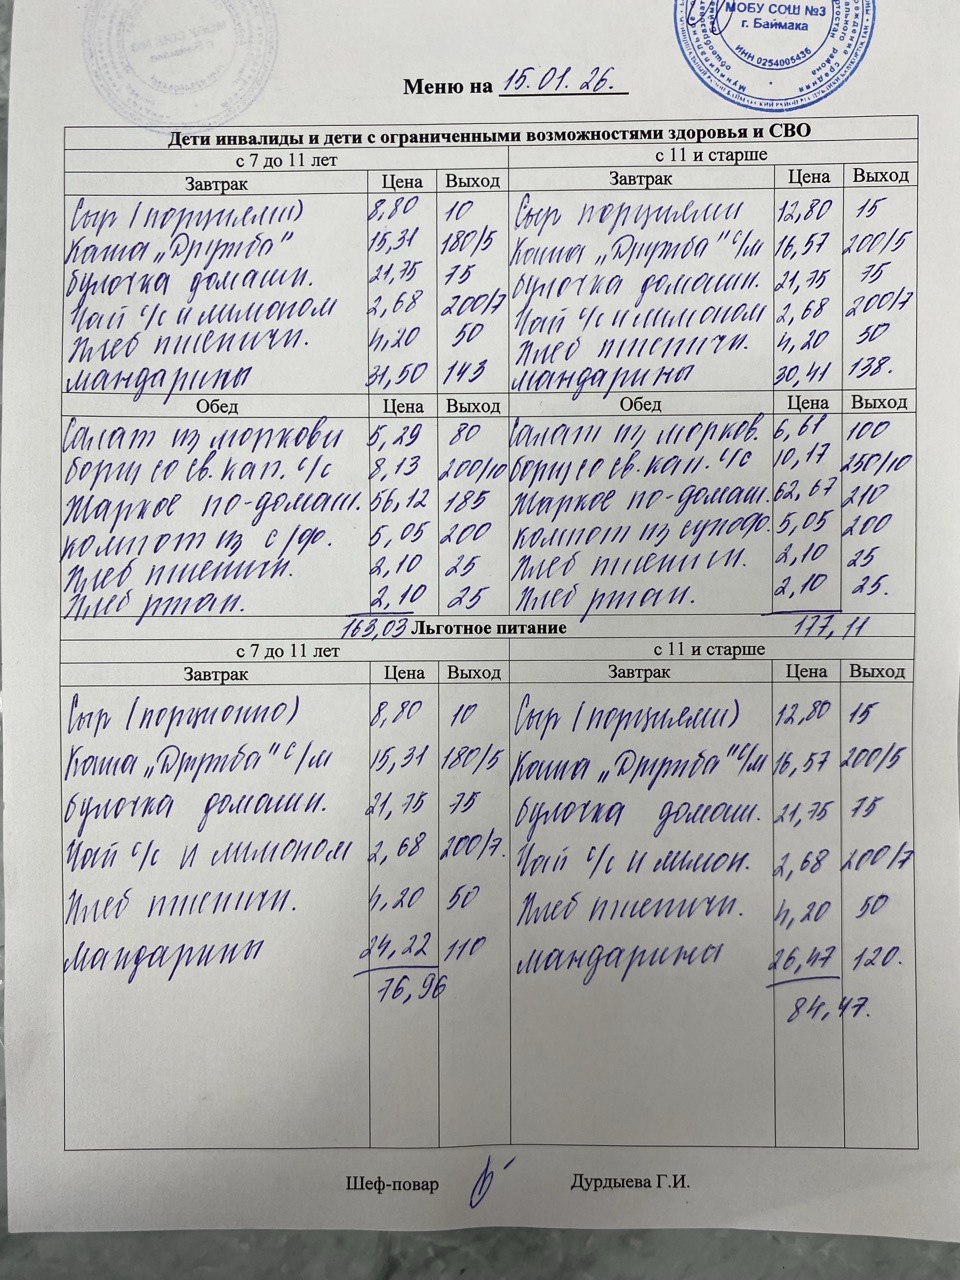 МОБУ СОШ №3
г. Баймака
ИНН 0254005436
Меню на 15.01.26.
Дети инвалиды и дети с ограниченными возможностями здоровья и СВО
с 7 до 11 лет с 11 и старше
Завтрак Цена Выход Завтрак Цена Выход
Сыр (порциями) 8,80 10 Сыр порциями 12,80 15
Каша „Дружба" 15,31 180/5 Каша „Дружба" с/м 16,57 200/5
булочка домашн. 21,75 75 булочка домашн. 21,75 75
Чай с/с и лимоном 2,68 200/7 Чай с/с и лимоном 2,68 200/7
Хлеб пшеничн. 4,20 50 Хлеб пшеничн. 4,20 50
мандарины 31,50 143 мандарины 30,41 138.
Обед Цена Выход Обед Цена Выход
Салат из моркови 5,29 80 Салат из морков. 6,61 100
борщ со св. кап. с/с 8,13 200/10 борщ со св. кап. с/с 10,17 250/10
Жаркое по-домаш. 56,12 185 Жаркое по-домаш. 62,67 210
компот из с/ф. 5,05 200 компот из сухофр. 5,05 200
Хлеб пшеничн. 2,10 25 Хлеб пшеничн. 2,10 25
Хлеб ржан. 2,10 25 Хлеб ржан. 2,10 25.
163,03 Льготное питание 177,11
с 7 до 11 лет с 11 и старше
Завтрак Цена Выход Завтрак Цена Выход
Сыр (порционно) 8,80 10 Сыр (порциями) 12,80 15
Каша „Дружба" с/м 15,31 180/5 Каша „Дружба" с/м 16,57 200/5
булочка домашн. 21,75 75 булочка домаш. 21,75 75
Чай с/с и лимоном 2,68 200/7. Чай с/с и лимон. 2,68 200/7
Хлеб пшеничн. 4,20 50 Хлеб пшеничн. 4,20 50
мандарины 24,22 110 мандарины 26,47 120.
76,96 84,47.
Шеф-повар Дурдыева Г.И.